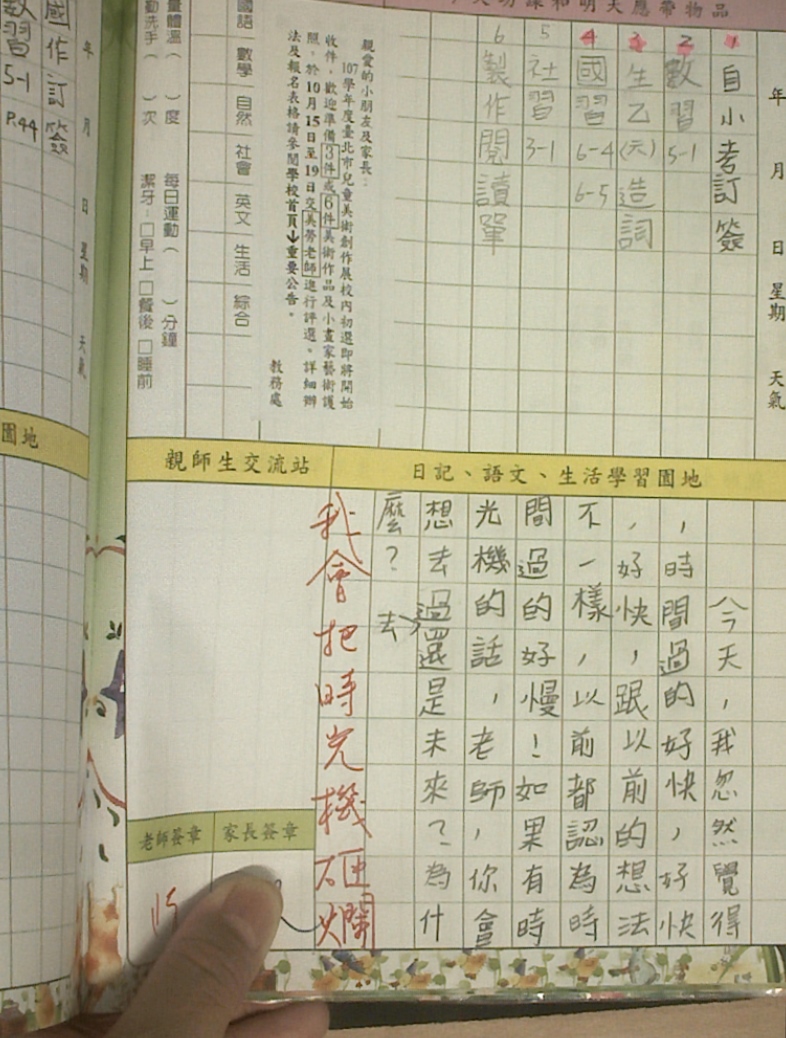 功課和明天應帶物品
年 月 日 星期 天氣
1 自小考訂簽
2 數習5-1
3 生乙(元)造詞
4 國習6-4 6-5
5 社習3-1
6 製作閱讀單
親愛的小朋友及家長:
107學年度臺北市兒童美術創作展校內初選即將開始
收件,歡迎準備3件或6件美術作品及小畫家藝術護
照,於10月15日至19日交美勞老師進行評選。詳細辦
法及報名表格請參閱學校首頁↓重要公告。
教務處
國語 數學 自然 社會 英文 生活 綜合
量體溫( )度 每日運動( )分鐘
勤洗手( )次 潔牙:□早上 □餐後 □睡前
日記、語文、生活學習園地
今天,我忽然覺得
,時間過的好快,好快
,好快,跟以前的想法
不一樣,以前都認為時
間過的好慢!如果有時
光機的話,老師,你會
想去過去還是未來?為什
麼?
我會把時光機砸爛
親師生交流站
家長簽章
老師簽章
年 月 日 星期 天氣
國作訂簽
數習5-1 P.44
園地